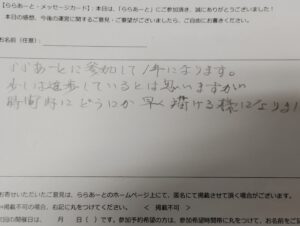 【ららあーと・メッセージカード】:本日は、「ららあーと」にご参加頂き、誠にありがとうございました!
本日の感想、今後の運営に関するご意見・ご要望がございましたら、ご自由にお書きください。
お名前(任意):
ららあーとに参加して1年になります。
少しは進歩しているとは思いますが
時間内にどうにか早く描ける様になりま
お寄せいただいたご意見は、ららあーとのホームページ上にて、匿名にて掲載させて頂く場合がございます。
※掲載不可の場合、右記に丸をつけてください。 < 掲載不可 >
次回の開催日は、 月 日( )です。参加予約希望の方は、参加希望時間帯に丸をつけて、お名前をご